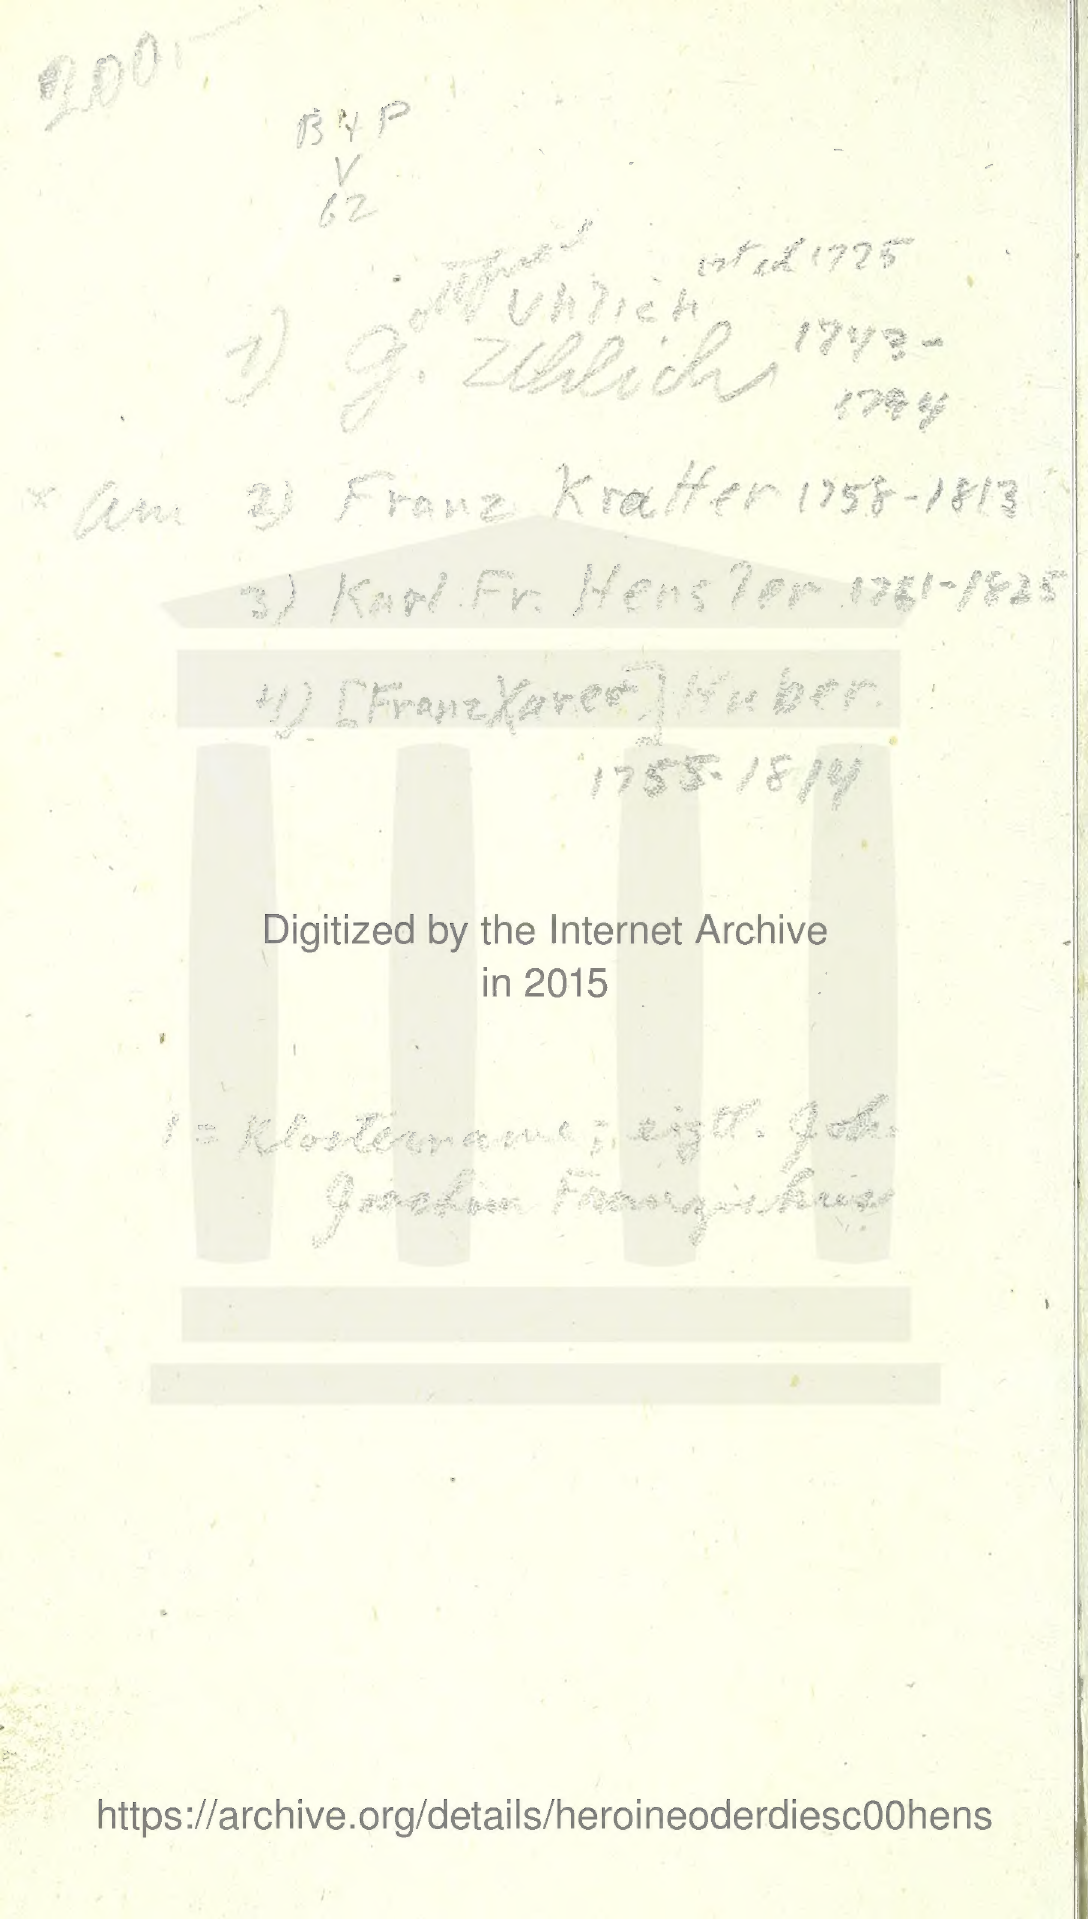 200.-
B 4 P
V
62
Uhlich 1775
1) G. Uhlich 1743-
1794
* Am 2) Franz Kratter 1758-1813
3) Karl Fr. Hensler 1761-1825
4) [Franz Xaver] Huber.
1755-1814
Digitized by the Internet Archive
in 2015
1 = Klostername; eigtl. Joh.
Joachim
https://archive.org/details/heroineoderdiesc00hens